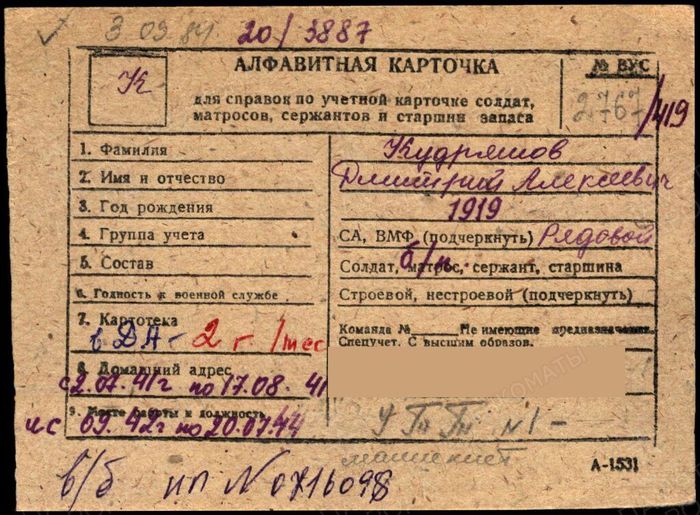 3.09.84 20/3887
К
АЛФАВИТНАЯ КАРТОЧКА
№ ВУС
для справок по учетной карточке солдат,
матросов, сержантов и старшин запаса
2767/419
1. Фамилия Кудряшов
2. Имя и отчество Дмитрий Алексеевич
3. Год рождения 1919
4. Группа учета СА, ВМФ (подчеркнуть) Рядовой
5. Состав Солдат, матрос, сержант, старшина
б/п
6. Годность к военной службе Строевой, нестроевой (подчеркнуть)
7. Картотека Команда № Не имеющие предназначения.
Спецучет. С высшим образов.
в ДА - 2 г. 1 мес
8. Домашний адрес
с 2.07.41г по 17.08.41
9. Место работы и должность
и с 09.42г по 20.07.44
№1 -
машинист
А-1531
в/б ИП N0716098